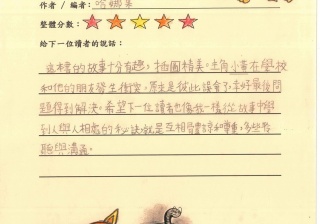 作者 / 編者：哈娜朵
整體分數：
給下一位讀者的說話：
這本書的故事十分有趣，插圖精美。主角小青在學校
和他的朋友發生衝突，原來是彼此誤會了，幸好最後問
題得到解決。希望下一位讀者也像我一樣從故事中學
到人與人相處的秘訣就是互相體諒和尊重，多些聆
聽與溝通。